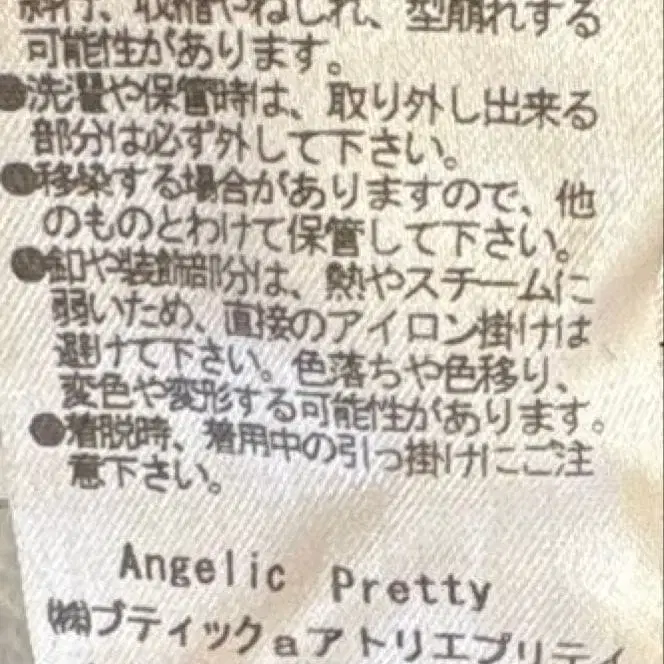 斜行、収縮やねじれ、型崩れする
可能性があります。
●洗濯や保管時は、取り外し出来る
部分は必ず外して下さい。
●移染する場合がありますので、他
のものとわけて保管して下さい。
●釦や装飾部分は、熱やスチームに
弱いため、直接のアイロン掛けは
避けて下さい。色落ちや色移り、
変色や変形する可能性があります。
●着脱時、着用中の引っ掛けにご注
意下さい。
Angelic Pretty
㈱ブティックaアトリエプリティ